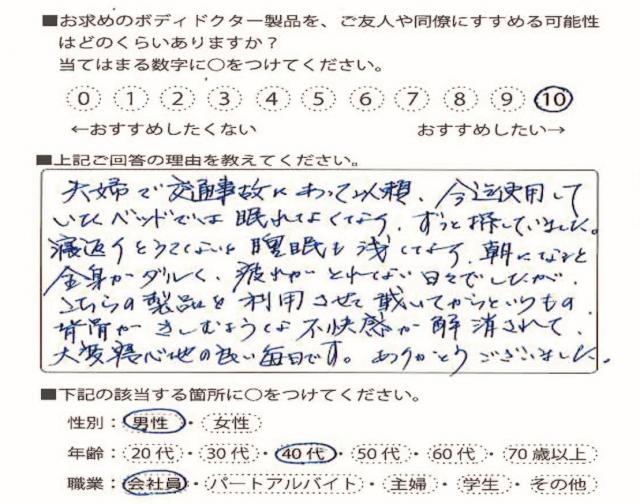 ■お求めのボディドクター製品を、ご友人や同僚にすすめる可能性
はどのくらいありますか？
当てはまる数字に○をつけてください。
0 1 2 3 4 5 6 7 8 9 10
←おすすめしたくない おすすめしたい→
■上記ご回答の理由を教えてください。
夫婦で交通事故にあって以来、今迄使用して
いたベッドでは眠れなくなり、ずっと探していました。
寝返りをうてないと睡眠も浅くなり、朝になると
全身がダルく、疲れがとれない日々でしたが、
こちらの製品を利用させて戴いてからというもの
背骨がきしむような不快感が解消されて、
大変寝心地の良い毎日です。ありがとうございました。
■下記の該当する箇所に○をつけてください。
性別：男性・女性
年齢：20代・30代・40代・50代・60代・70歳以上
職業：会社員・パートアルバイト・主婦・学生・その他